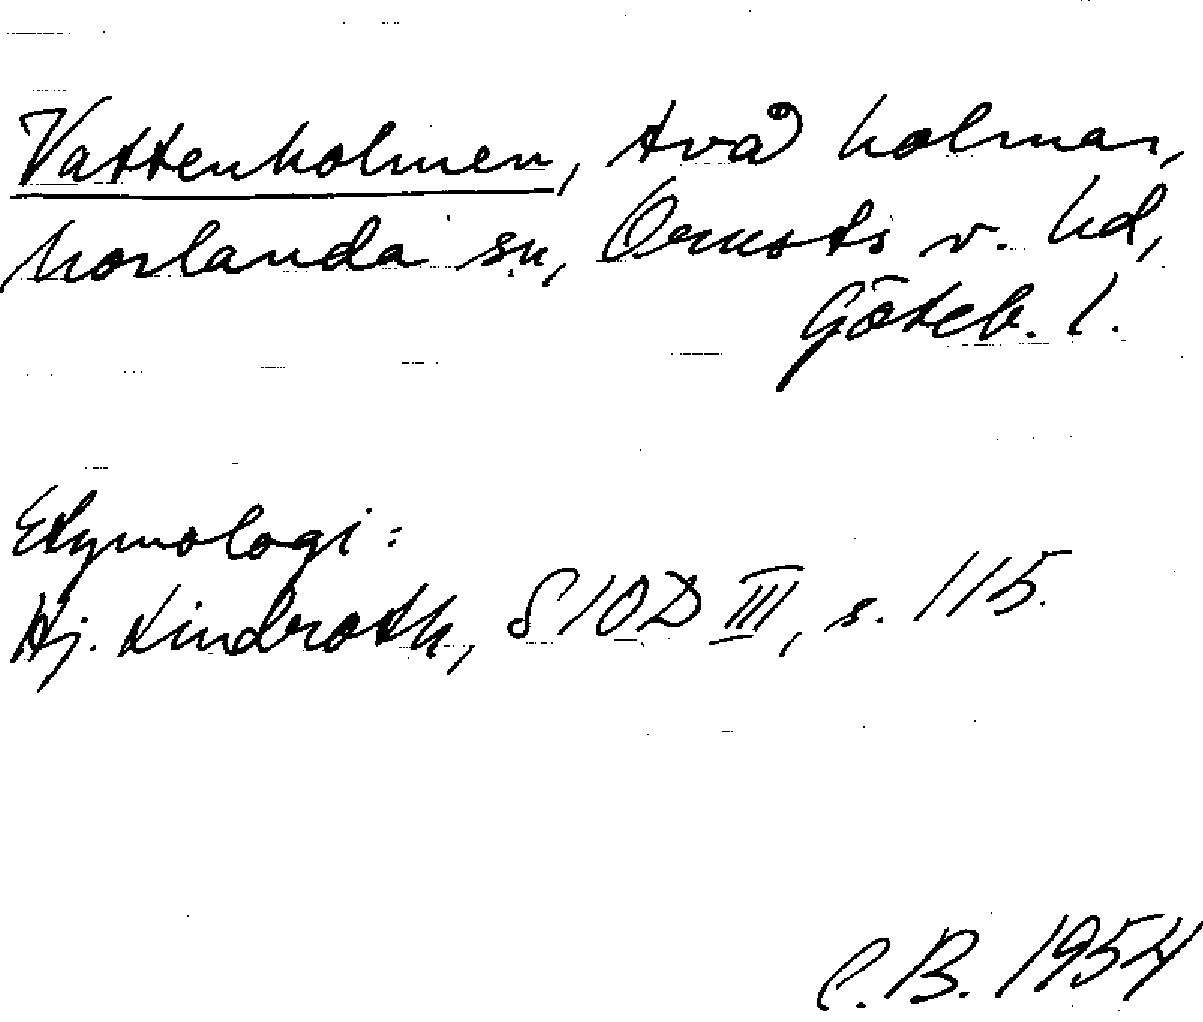 Vattenholmen, två holmar,
Morlanda sn, Orusts v. hd,
Göteb. l.
Etymologi:
Hj. Lindroth, SIOD III, s. 115.
C. B. 1954